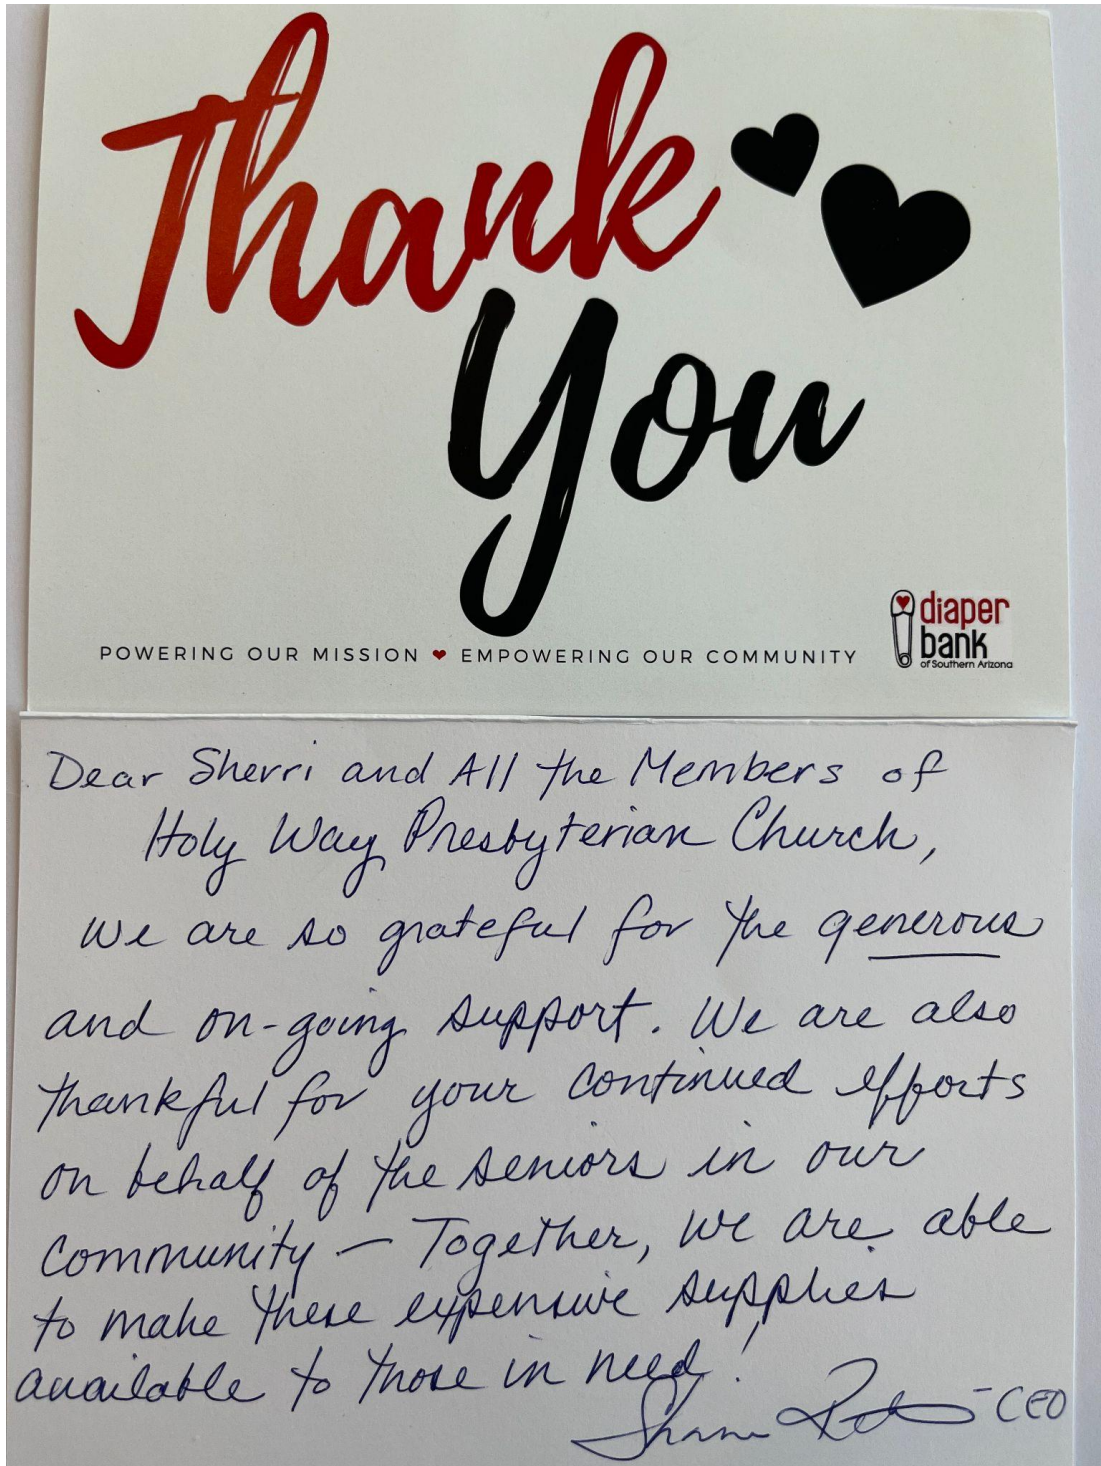 Thank
You
POWERING OUR MISSION ♥ EMPOWERING OUR COMMUNITY
diaper
bank
of Southern Arizona
Dear Sherri and All the Members of
Holy Way Presbyterian Church,
We are so grateful for the generous
and on-going support. We are also
thankful for your continued efforts
on behalf of the seniors in our
community – Together, we are able
to make these expensive supplies
available to those in need!
- CEO